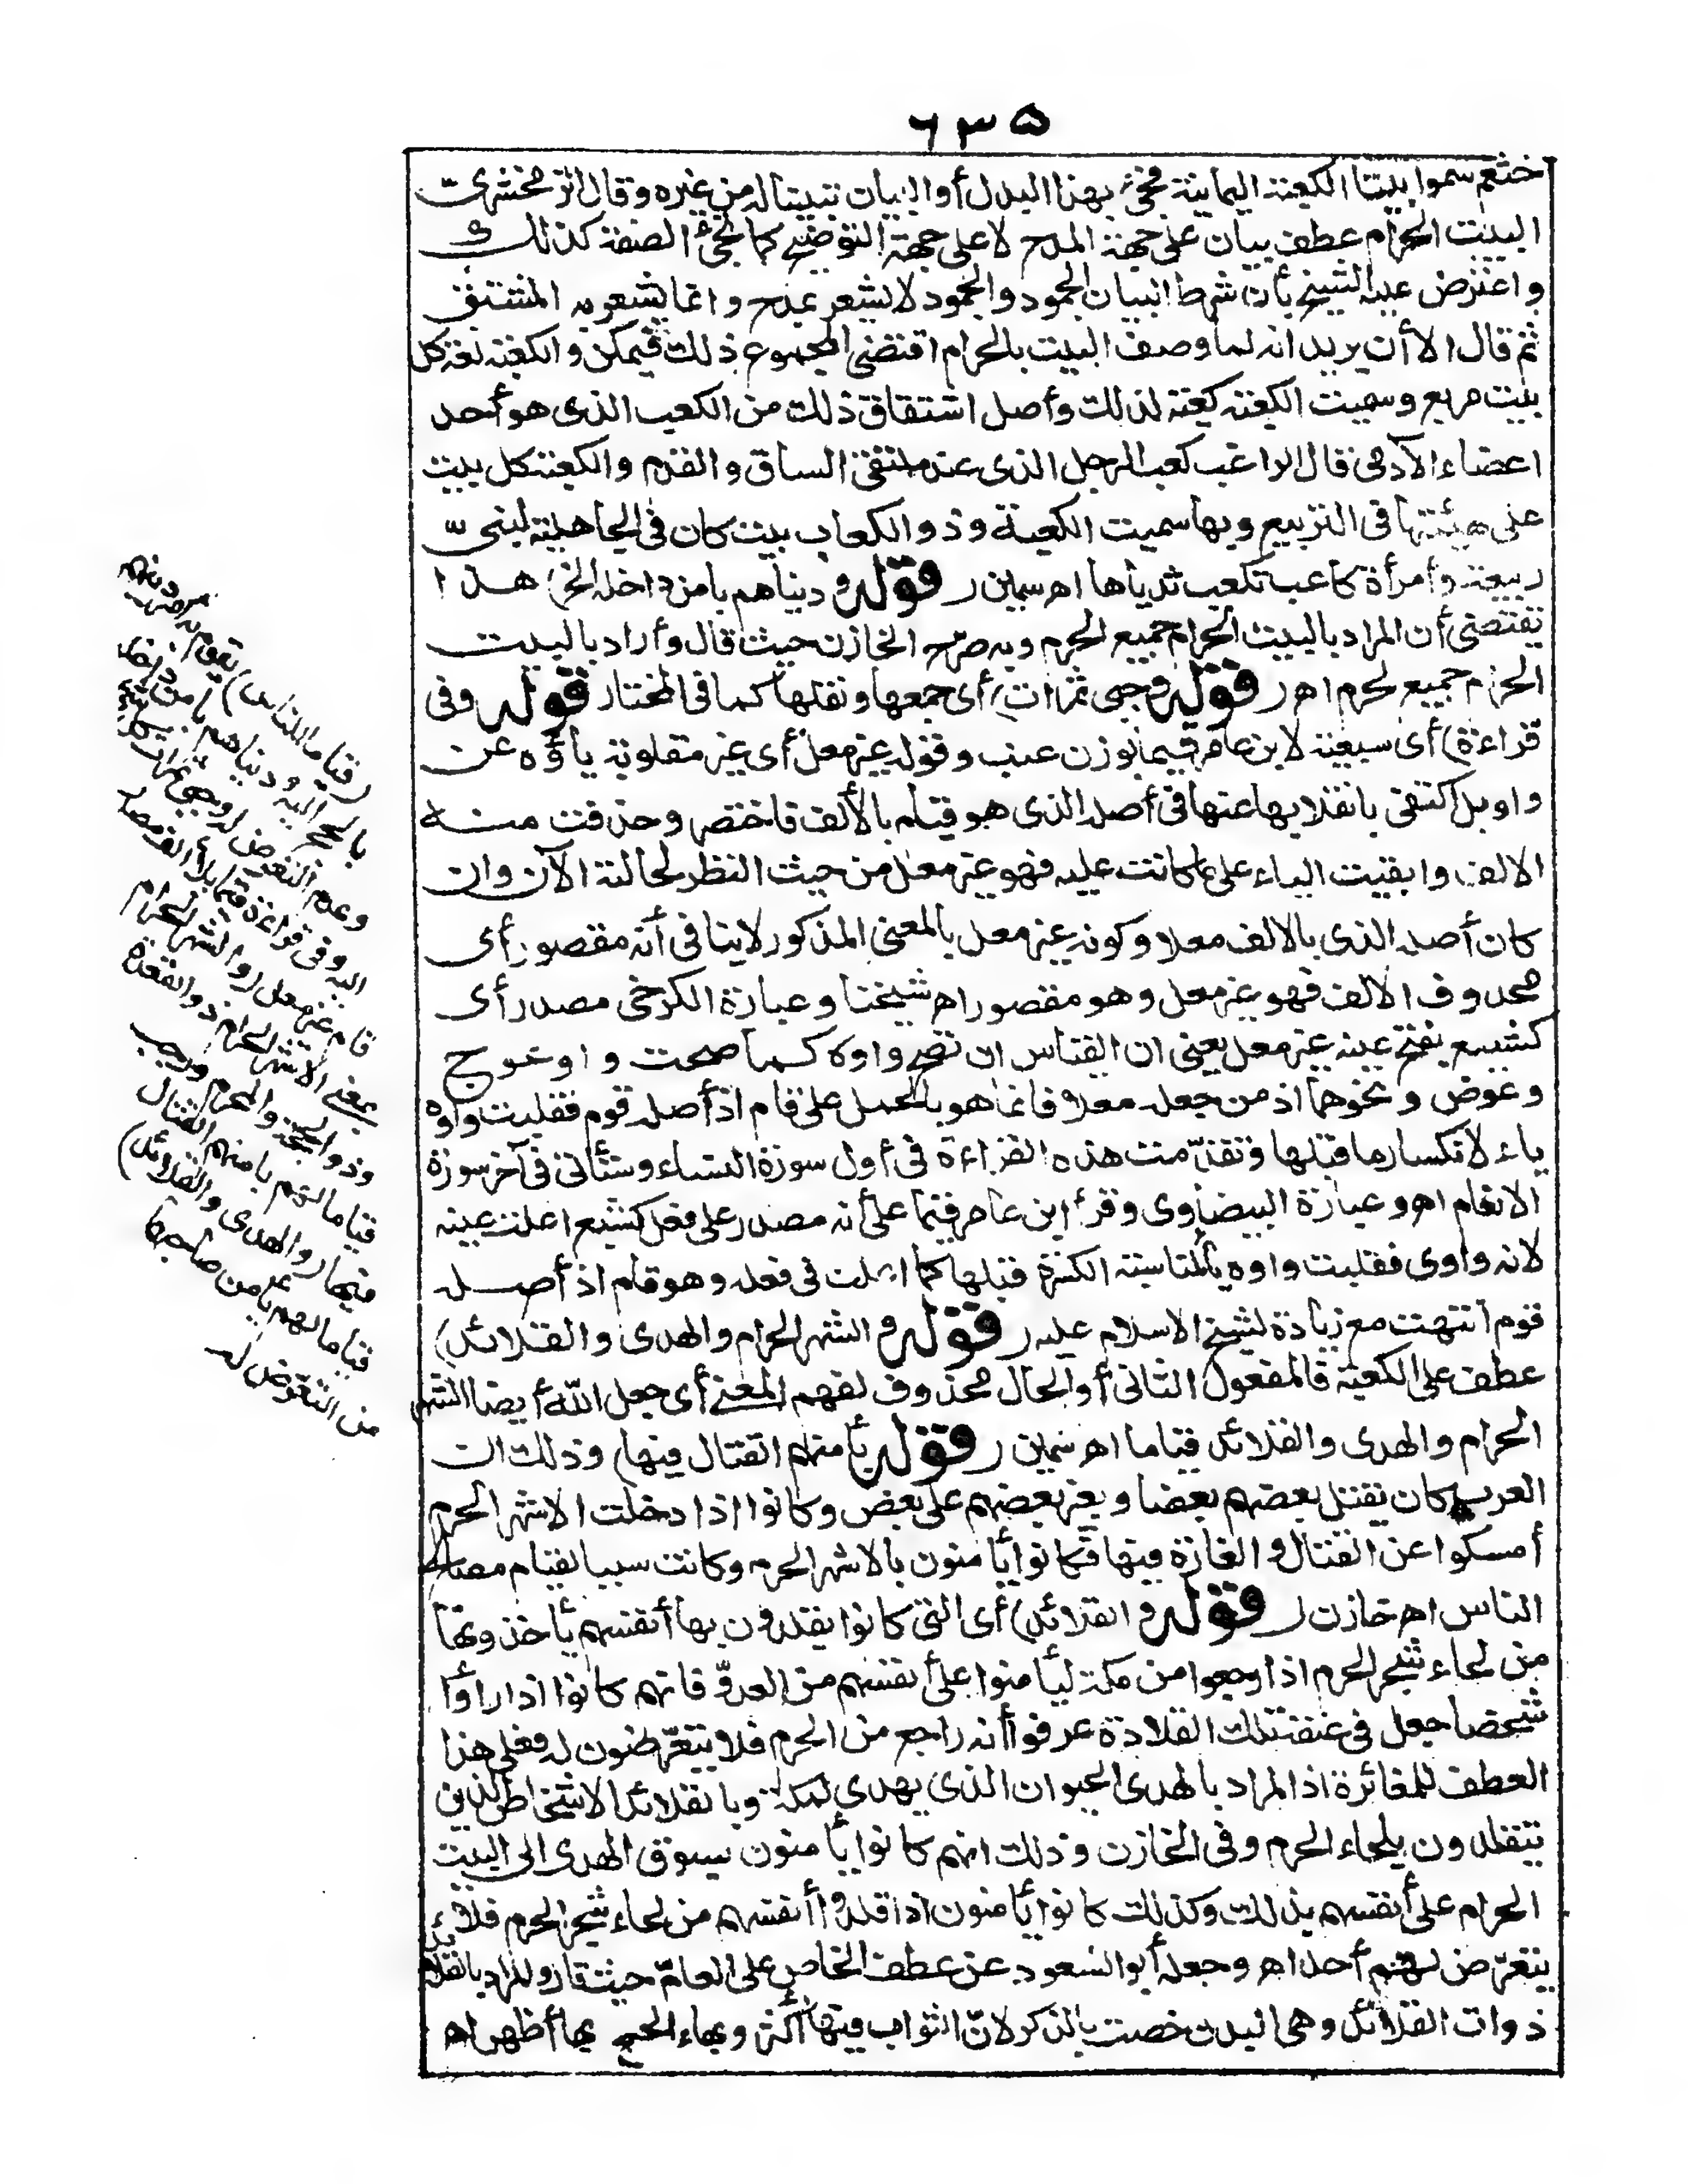 ٦٣٥
خثعم سموا بيتا الكعبة اليمانية فجئ بهذا البدل أو البيان تبيينا له من غيره وقال الزمخشرى
البيت الحرام عطف بيان على جهة المدح لا على جهة التوضيح كما تجئ الصفة كذلك
واعترض عليه الشيخ بأن شرط البيان الجمود والجمود لا يشعر بمدح وانما يشعر به المشتق
ثم قال الا أن يريد انه لما وصف البيت بالحرام اقتضى المجموع ذلك فيمكن والكعبة لغة كل
بيت مربع وسميت الكعبة كعبة لذلك وأصل اشتقاق ذلك من الكعب الذى هو أحد
اعضاء الآدمى قال الراغب كعب الرجل الذى عند ملتقى الساق والقدم والكعبة كل بيت
على هيئتها فى التربيع وبها سميت الكعبة وذو الكعاب بيت كان فى الجاهلية لبنى
ربيعة وامرأة كاعب تكعب ثدياها اهـ سمين (قوله ودنياهم بامن داخله الخ) هذا
يقتضى أن المراد بالبيت الحرام جميع الحرم وبه صرح الخازن حيث قال وأراد بالبيت
الحرام جميع الحرم اهـ (قوله وجبى ثمرات) أى جمعها ونقلها كما فى المختار (قوله وفى
قراءة) أى سبعية لابن عامر قيما بوزن عنب وقوله غير معل أى غير مقلوبة ياؤه عن
واو بل اكتفى بانقلابها عنها فى أصله الذى هو قيام بالألف فاختصر وحذفت منه
الالف وابقيت الياء على ما كانت عليه فهو غير معل من حيث النظر لحالته الآن وان
كان أصله الذى بالالف معلا وكونه غير معل بالمعنى المذكور لا ينافى أنه مقصور أى
محذوف الالف فهو غير معل وهو مقصور اهـ شيخنا وعبارة الكرخى مصدر أى
كشبع بفتح عينه غير معل يعنى ان القياس ان تصح واوه كما صحت واو عوج
وعوض ونحوهما اذ من جعله معلا فانما هو بالحمل على قام اذ أصله قوم فقلبت واوه
ياء لانكسار ما قبلها وتقدّمت هذه القراءة فى أول سورة النساء وستأتى فى آخر سورة
الانعام اهـ وعبارة البيضاوى وقرأ ابن عامر قيما على أنه مصدر على فعل كشبع اعلت عينه
لانه واوى فقلبت واوه ياء لمناسبة الكسرة قبلها كما اعلت فى فعله وهو قام اذ أصله
قوم انتهت مع زيادة لشيخ الاسلام عليه (قوله والشهر الحرام والهدى والقلائد)
عطف على الكعبة فالمفعول الثانى أو الحال محذوف لفهم المعنى أى جعل الله أيضا الشهر
الحرام والهدى والقلائد قياما اهـ سمين (قوله بأمنهم القتال فيها) وذلك ان
العرب كان يقتل بعضهم بعضا ويغير بعضهم على بعض وكانوا اذا دخلت الاشهر الحرم
أمسكوا عن القتال والغارة فيها فكانوا يأمنون بالاشهر الحرم وكانت سببا لقيام مصالح
الناس اهـ خازن (قوله والقلائد) أى التى كانوا يقلدون بها أنفسهم يأخذونها
من لحاء شجر الحرم اذا رجعوا من مكة ليأمنوا على أنفسهم من العدوّ فانهم كانوا اذا رأوا
شخصا جعل فى عنقه تلك القلادة عرفوا أنه راجع من الحرم فلا يتعرّضون له فعلى هذا
العطف للمغائرة اذ المراد بالهدى الحيوان الذى يهدى لمكة وبالقلائد الاشخاص الذين
يتقلدون بلحاء الحرم وفى الخازن وذلك انهم كانوا يأمنون بسوق الهدى الى البيت
الحرام على أنفسهم بذلك وكذلك كانوا يأمنون اذا قلدوا أنفسهم من لحاء شجر الحرم فلا
يتعرّض لهم أحد اهـ وجعله أبو السعود من عطف الخاص على العامّ حيث قال والمراد بالقلائد
ذوات القلائد وهى البدن خصت بالذكر لانّ الثواب فيها أكثر وبهاء الحج بها أظهر اهـ
(قياما للناس) يقوم به أمر دينهم
بالحج اليه ودنياهم بامن داخله
وعدم التعرض له وجبى ثمرات كل شئ
اليه وفى قراءة قيما بلا ألف مصدر
قام غير معل (والشهر الحرام)
بمعنى الاشهر الحرم ذو القعدة
وذو الحجة والمحرم ورجب
قياما لهم بامنهم القتال
فيها (والهدى والقلائد)
قياما لهم بأمن صاحبهما
من التعرض له